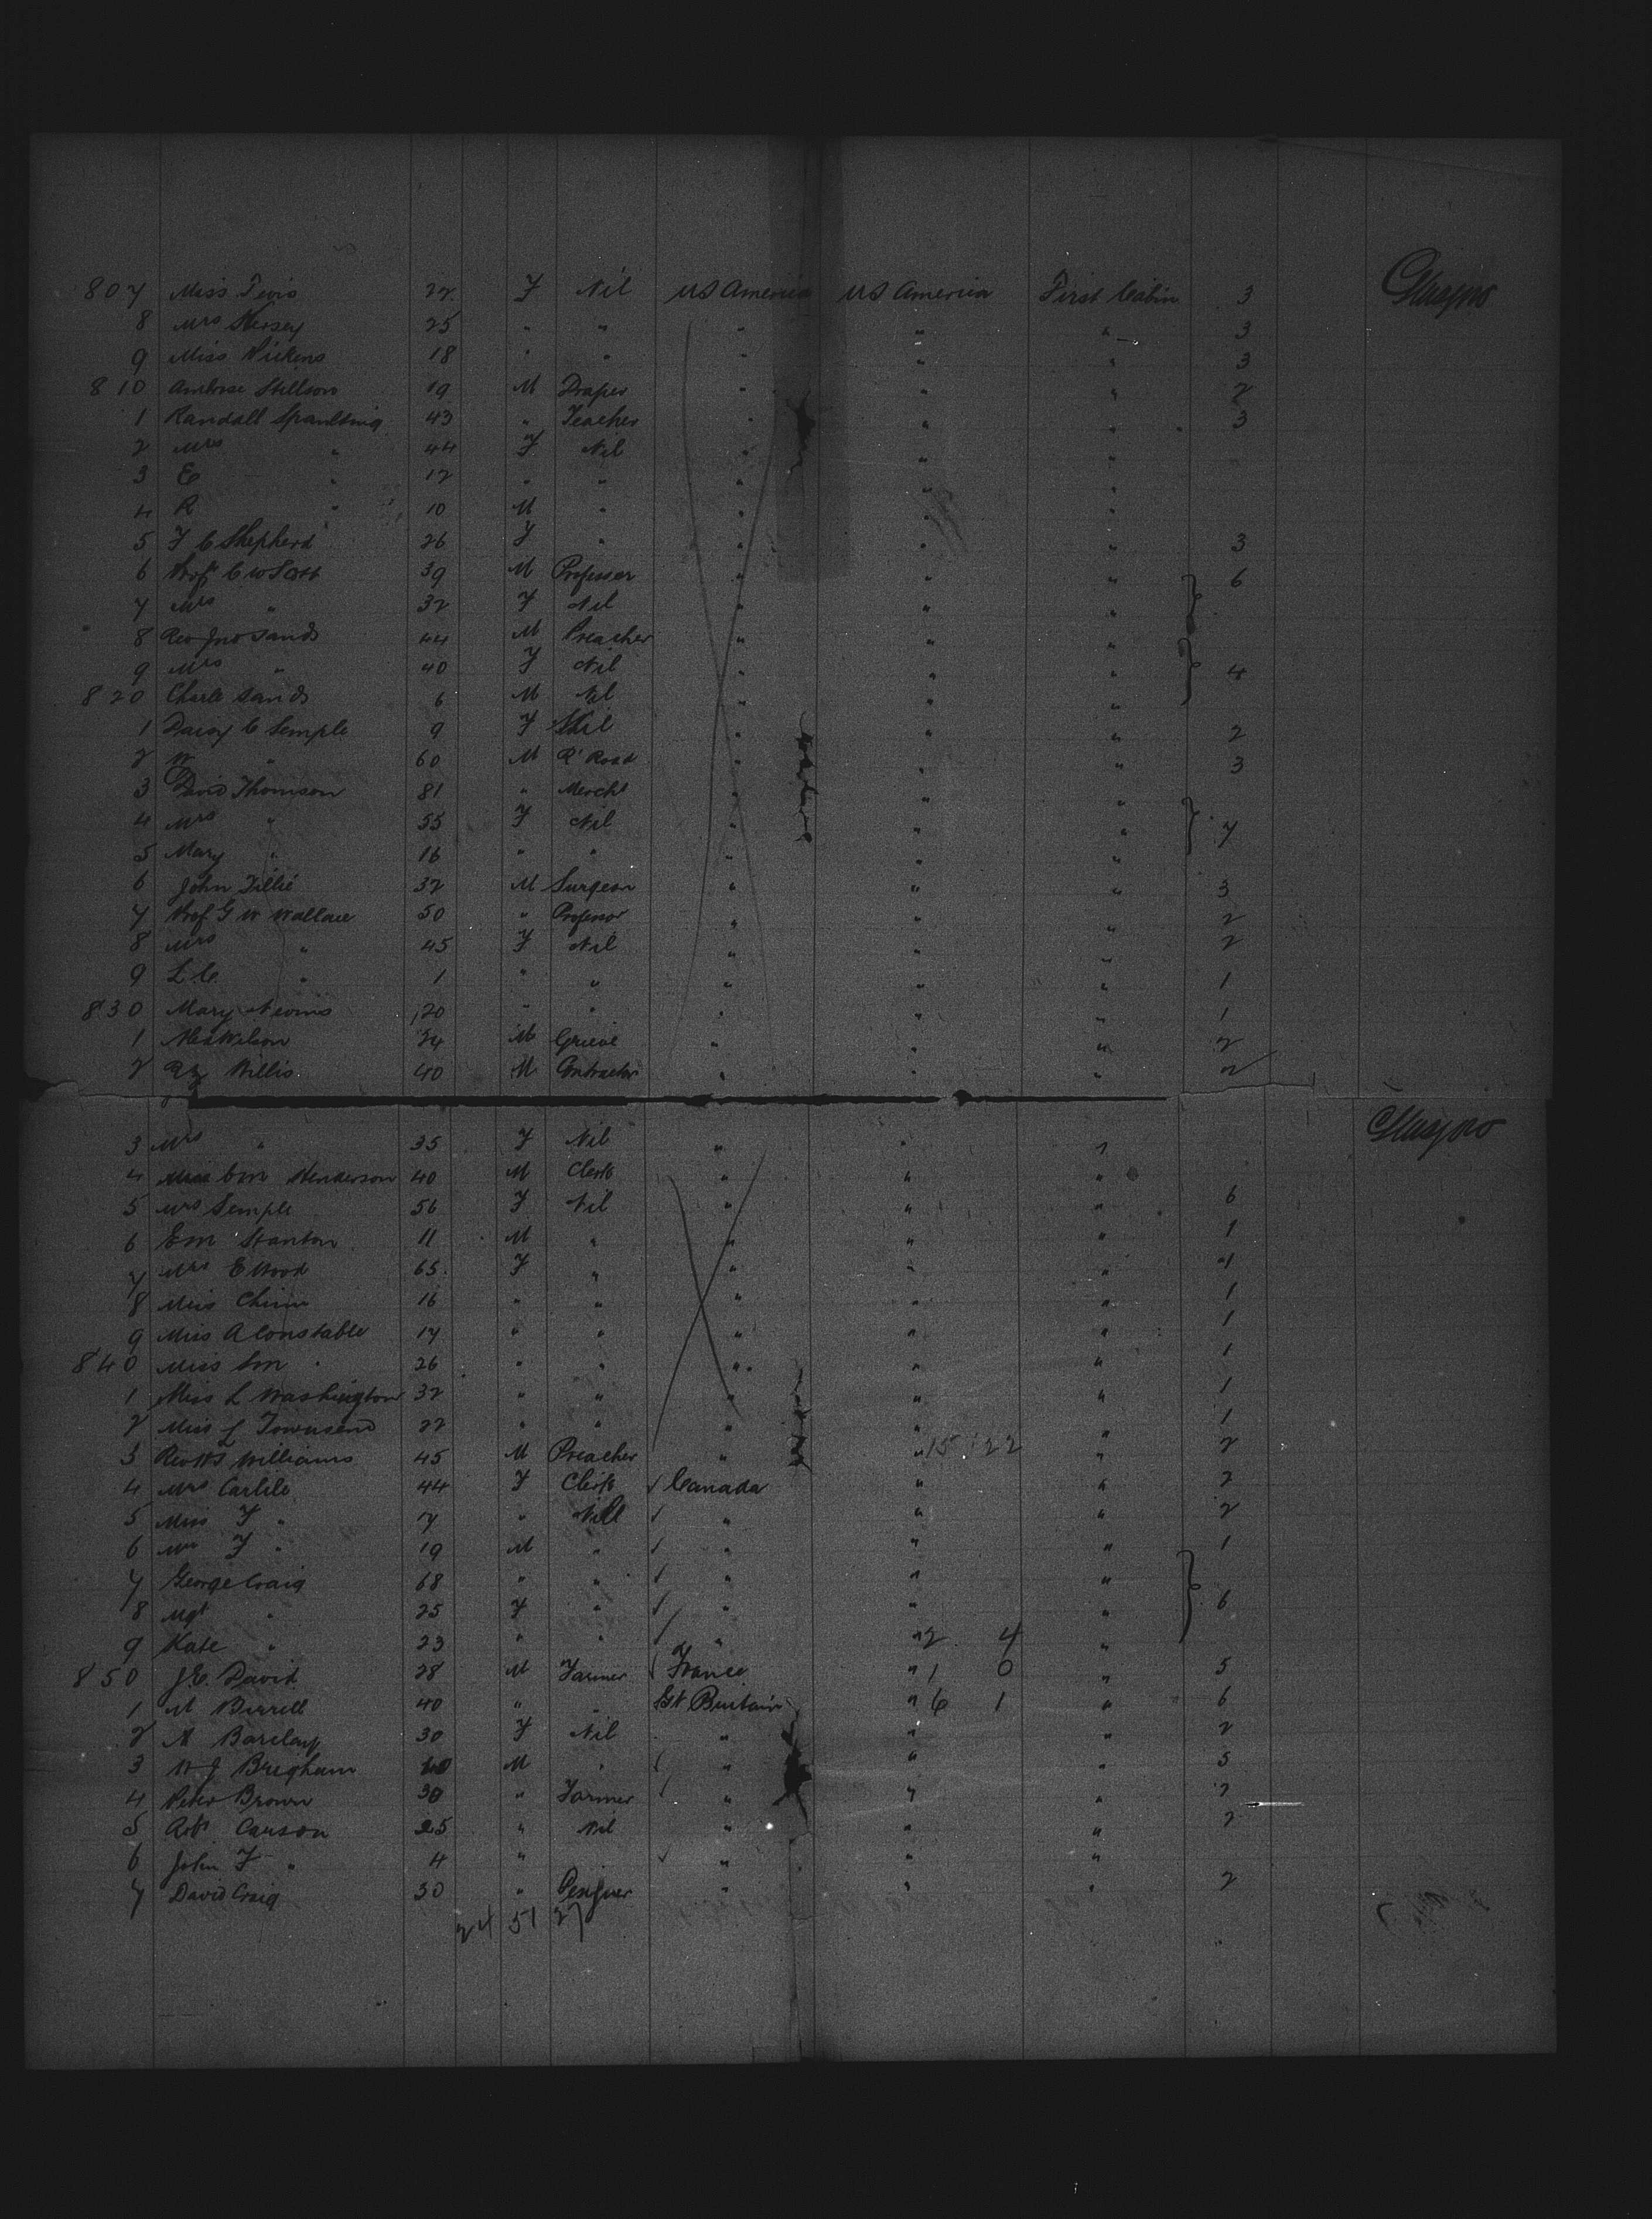 807 Miss Tevis 22 F Nil US America US America First Cabin 3 Glasgow
8 Mrs Hersey 25 " " " " " 3
9 Miss Vickens 18 " " " " " 3
810 Ambrose Stillson 19 M Draper " " " 2
1 Randall Spaulding 43 " Teacher " " " 3
2 Mrs " 44 F Nil " " "
3 E " 12 " " " " "
4 R " 10 M " " " "
5 F C Shepherd 26 F " " " " 3
6 Prof C W Scott 39 M Professor " " " 6
7 Mrs " 32 F Nil " " "
8 Rev Jno Sands 44 M Preacher " " "
9 Mrs " 40 F Nil " " " 4
820 Charle Sands 6 M Nil " " "
1 Daisy C Semple 9 F Nil " " " 2
2 W " 60 M R' Road " " " 3
3 David Thomson 81 " Mercht " " "
4 Mrs " 55 F Nil " " " 7
5 Mary " 16 " " " " "
6 John Tillie 32 M Surgeon " " " 3
7 Prof G W Wallace 50 " Professor " " " 2
8 Mrs " 45 F Nil " " " 2
9 L.C. " 1 " " " " " 1
830 Mary Nevins 20 " " " " " 1
1 Alex Wilson 24 M Grieve " " " 2
2 Willis 40 M Contractor " " " 2
3 Mrs " 35 F Nil " " " Glasgow
4 Miss C M Henderson 40 M Clerk " " "
5 Mrs Semple 56 F Nil " " " 6
6 E M Stanton 11 M " " " " 1
7 Mrs E Wood 65 F " " " " 1
8 Miss 16 " " " " " 1
9 Miss A Constable 17 " " " " " 1
840 Miss S M " 26 " " " " " 1
1 Miss L Washington 32 " " " " " 1
2 Miss L Townsend 22 " " " " " 1
3 Rev W J Williams 45 M Preacher " " 15 22 " 2
4 Mrs Carlile 44 F Clerk Canada " " 2
5 Miss F " 7 " Nil " " " 2
6 Mr F " 19 M " " " " 1
7 George Craig 68 " " " " "
8 Mgt " 25 F " " " " 6
9 Kate " 23 " " " " 2 4 "
850 J.E. David 28 M Farmer France " 1 0 " 5
1 M Birrell 40 " " Gt Britain " 6 1 " 6
2 A Barclay 30 F Nil " " " 2
3 W J Brigham M " " " " 5
4 Peter Brown 30 " Farmer " " " 2
5 Robt Carson 25 " Nil " " " 2
6 John F " 4 " " " "
7 David Craig 30 " Designer " " " 2
24 51 27